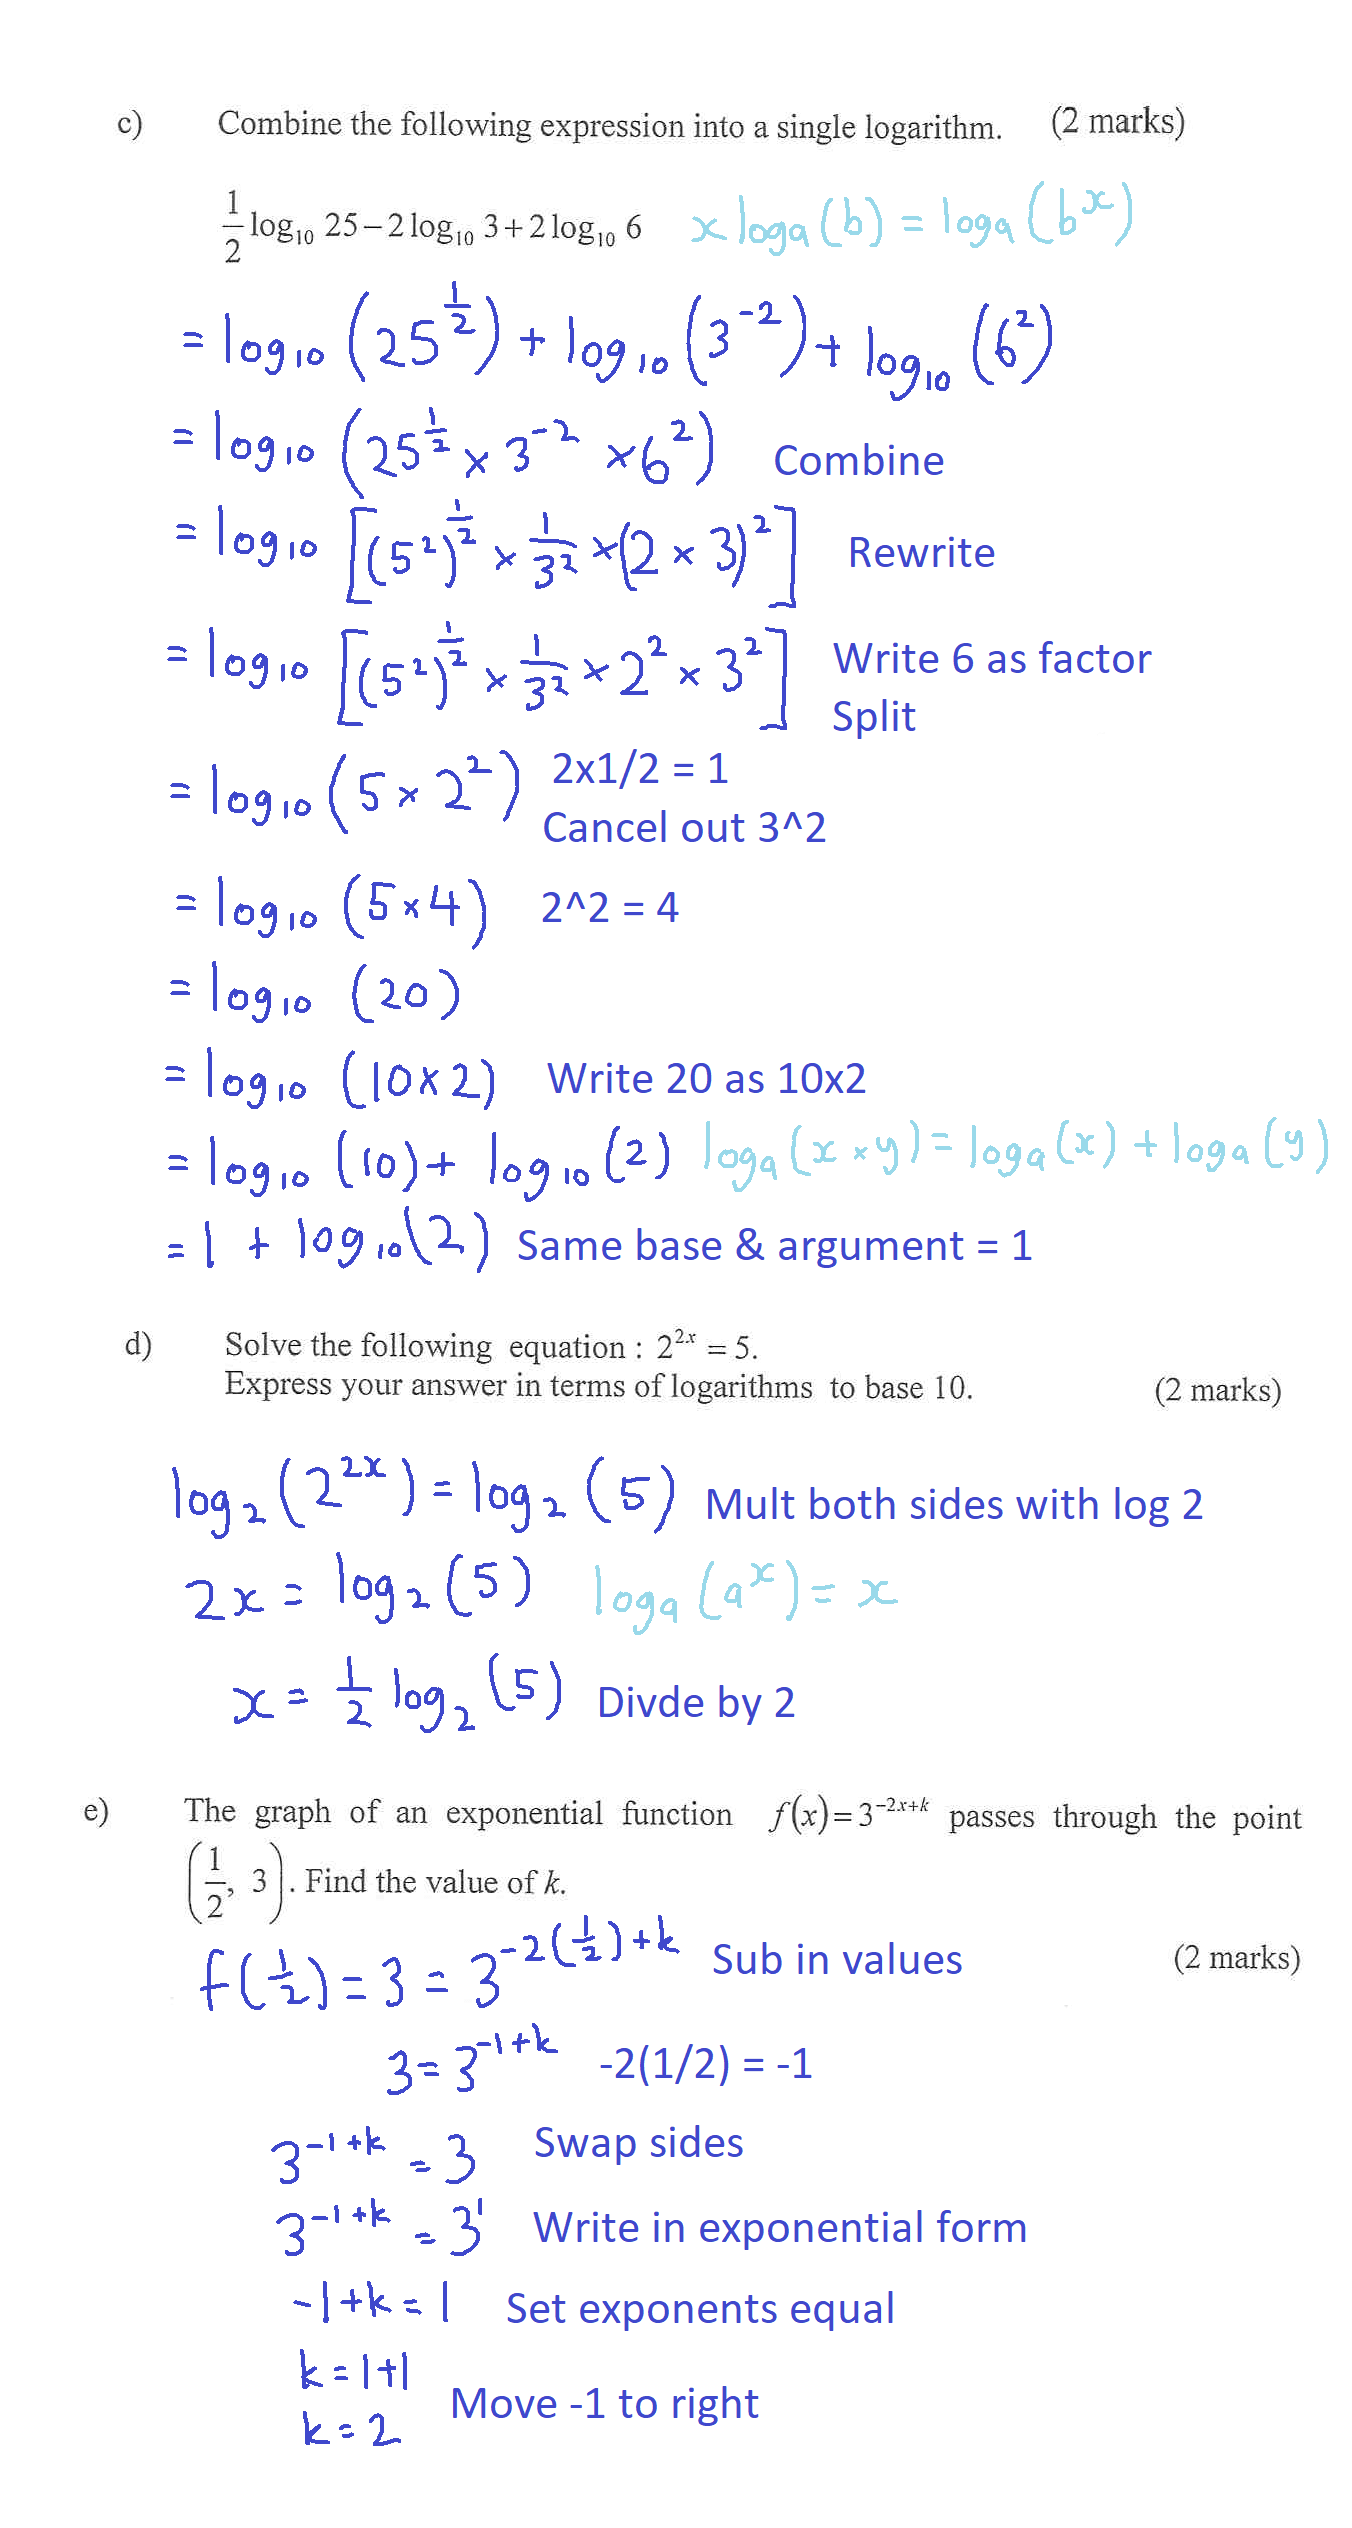 c) Combine the following expression into a single logarithm. (2 marks)
1/2 log₁₀ 25 – 2 log₁₀ 3 + 2 log₁₀ 6 x logₐ (b) = logₐ (bˣ)
= log₁₀ (25^(1/2)) + log₁₀ (3⁻²) + log₁₀ (6²)
= log₁₀ (25^(1/2) × 3⁻² × 6²) Combine
= log₁₀ [(5²)^(1/2) × 1/3² × (2 × 3)²] Rewrite
= log₁₀ [(5²)^(1/2) × 1/3² × 2² × 3²] Write 6 as factor
Split
= log₁₀ (5 × 2²) 2x1/2 = 1
Cancel out 3^2
= log₁₀ (5×4) 2^2 = 4
= log₁₀ (20)
= log₁₀ (10×2) Write 20 as 10x2
= log₁₀ (10) + log₁₀ (2) logₐ (x × y) = logₐ (x) + logₐ (y)
= 1 + log₁₀ (2) Same base & argument = 1
d) Solve the following equation : 2²ˣ = 5.
Express your answer in terms of logarithms to base 10. (2 marks)
log₂ (2²ˣ) = log₂ (5) Mult both sides with log 2
2x = log₂ (5) logₐ (aˣ) = x
x = 1/2 log₂ (5) Divde by 2
e) The graph of an exponential function f(x) = 3^(-2x+k) passes through the point
(1/2, 3). Find the value of k.
f(1/2) = 3 = 3^(-2(1/2)+k) Sub in values (2 marks)
3 = 3^(-1+k) -2(1/2) = -1
3^(-1+k) = 3 Swap sides
3^(-1+k) = 3¹ Write in exponential form
-1+k = 1 Set exponents equal
k = 1+1
Move -1 to right
k = 2